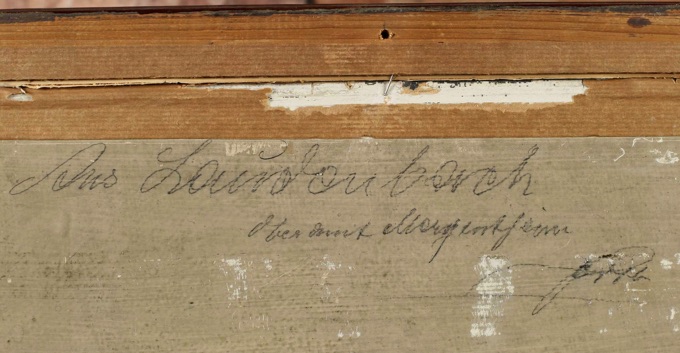 Aus Laudenbach
Oberamt Mergentheim